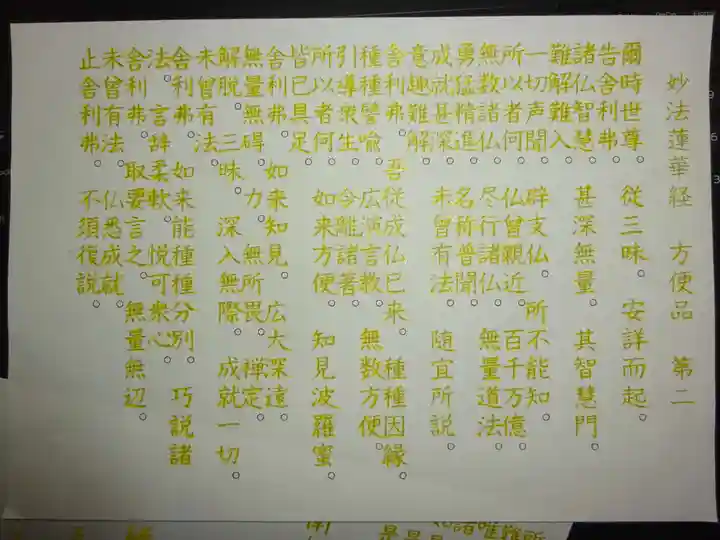 妙法蓮華経 方便品 第二
爾時世尊。 従三昧。 安詳而起。
告舎利弗
諸仏智慧 甚深無量 其智慧門。
難解難入
一切声聞 辟支仏 所不能知。
所以者何 仏曾親近 百千万億
無数諸仏 尽行諸仏 無量道法。
勇猛精進 名称普聞。
成就甚深 未曾有法 随宜所説。
意趣難解
舎利弗 吾従成仏已来 種種因縁
種種譬喩 広演言教 無数方便。
引導衆生 令離諸著。
所以者何 如来方便 知見波羅蜜。
皆已具足
舎利弗 如来知見。 広大深遠。
無量無碍 力 無所畏 禅定
解脱。三昧 深入無際 成就一切。
未曾有法
舎利弗 如来能種種分別。 巧説諸
法。言辞 柔軟 悦可衆心。
舎利弗 取要言之 無量無辺。
未曾有法 仏悉成就。
止舎利弗。 不須復説。